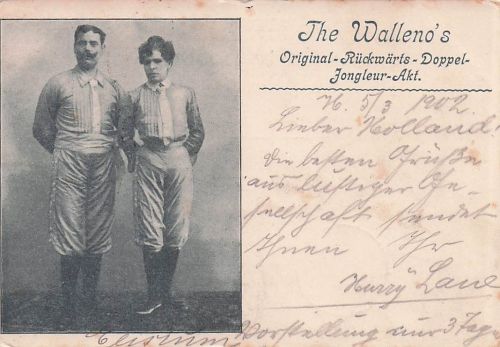 The Walleno's
Original-Rückwärts-Doppel-
Jongleur-Akt.
H. 5/3 1902
Lieber Holland
die besten Grüße
aus lustiger Ge-
sellschaft sendet
Ihnen Ihr
Harry Lane
Elisium Vorstellung nur 3 Tage